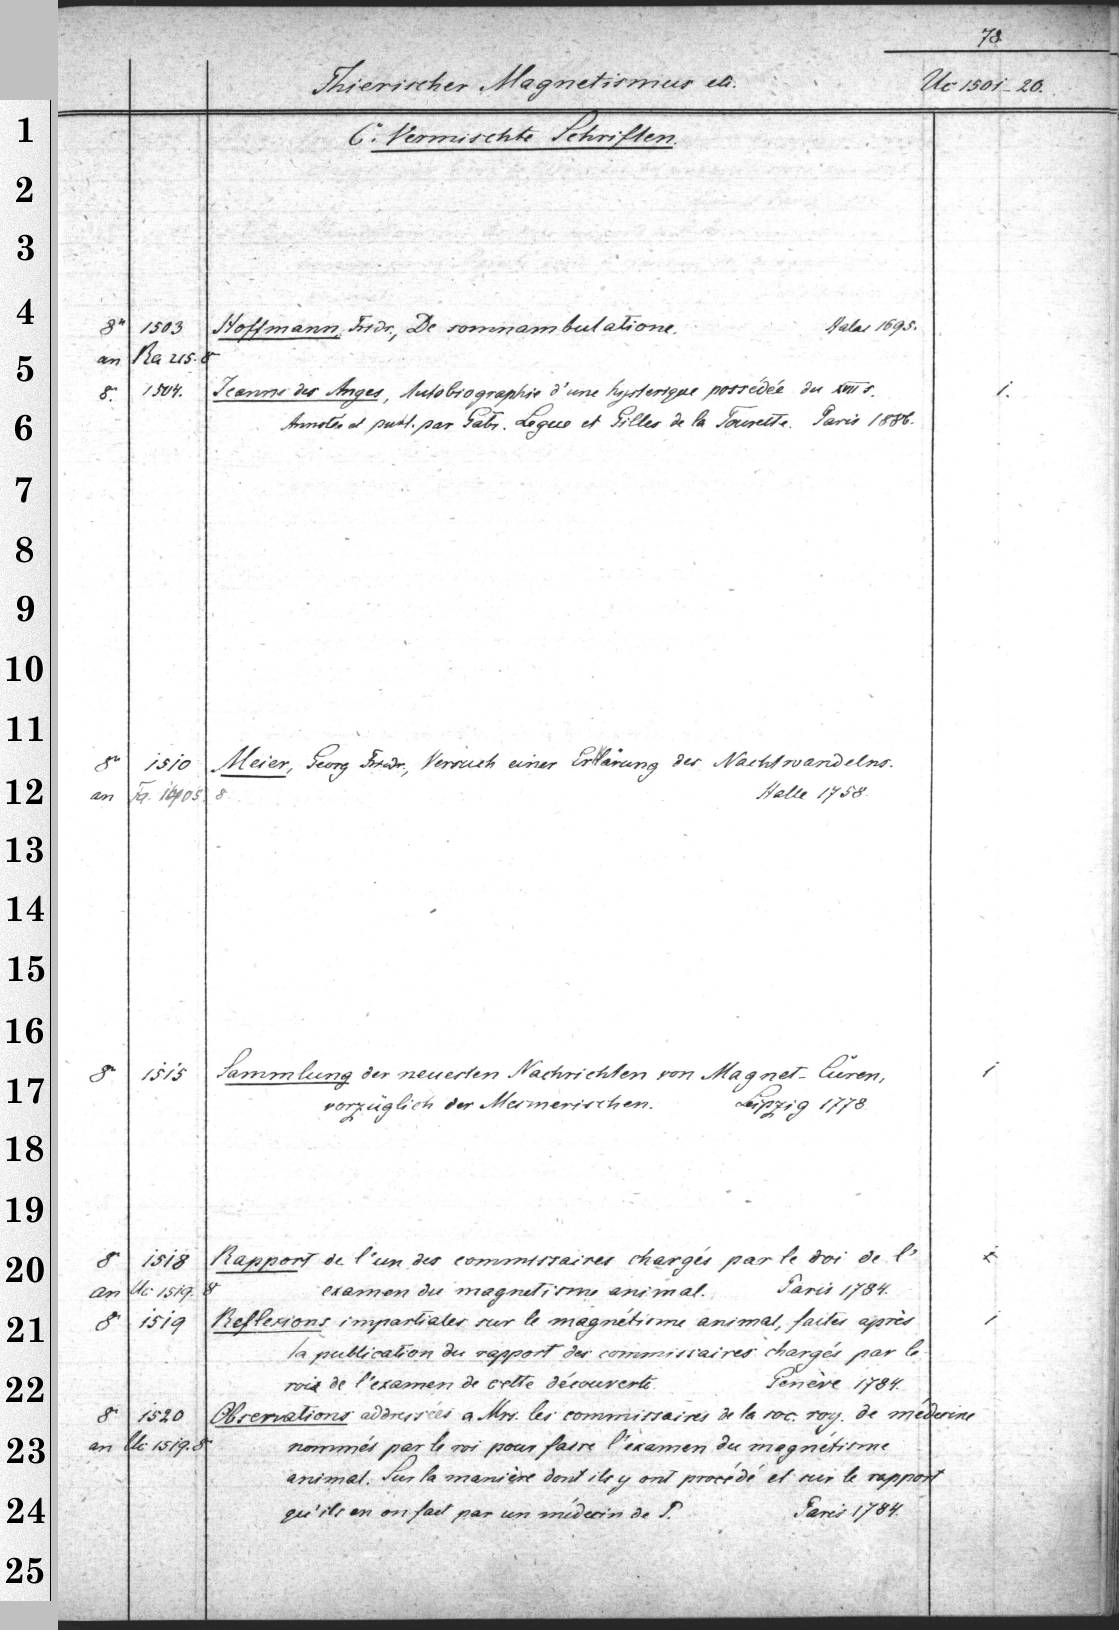 78
Thierischer Magnetismus etc. Uc 1501-20.
1 6. Vermischte Schriften.
2
3
4 8° 1503 Hoffmann, Fridr., De somnambulatione. Halae 1695.
an Ra 215. 8
5 8. 1504. Jeanne des Anges, Autobiographie d'une hysterique possédée du XVII s. 1.
6 Annotée et publ. par Gabr. Legue et Gilles de la Tourette. Paris 1886.
7
8
9
10
11
8° 1510 Meier, Georg Friedr., Versuch einer Erklärung des Nachtwandelns.
12 an 8. Halle 1758
13
14
15
16
8° 1515 Sammlung der neuesten Nachrichten von Magnet-Curen, 1
17 vorzüglich der Mesmerischen. Leipzig 1778
18
19
8° 1518 Rapport de l'un des commissaires chargés par le roi de l'
20 an Uc 1519. 8 examen du magnetisme animal. Paris 1784.
21 8° 1519 Reflexions impartiales sur le magnétisme animal, faites après 1
la publication du rapport des commissaires chargés par le
22 roi de l'examen de cette découverte. Genève 1784.
8° 1520 Observations addressées a Mrs. les commissaires de la soc. roy. de médecine
23 an Uc 1519. 8 nommés par le roi pour faire l'examen du magnétisme
animal. Sur la manière dont ils y ont procédé et sur le rapport
24 qu'ils en on fait par un médecin de P. Paris 1784.
25